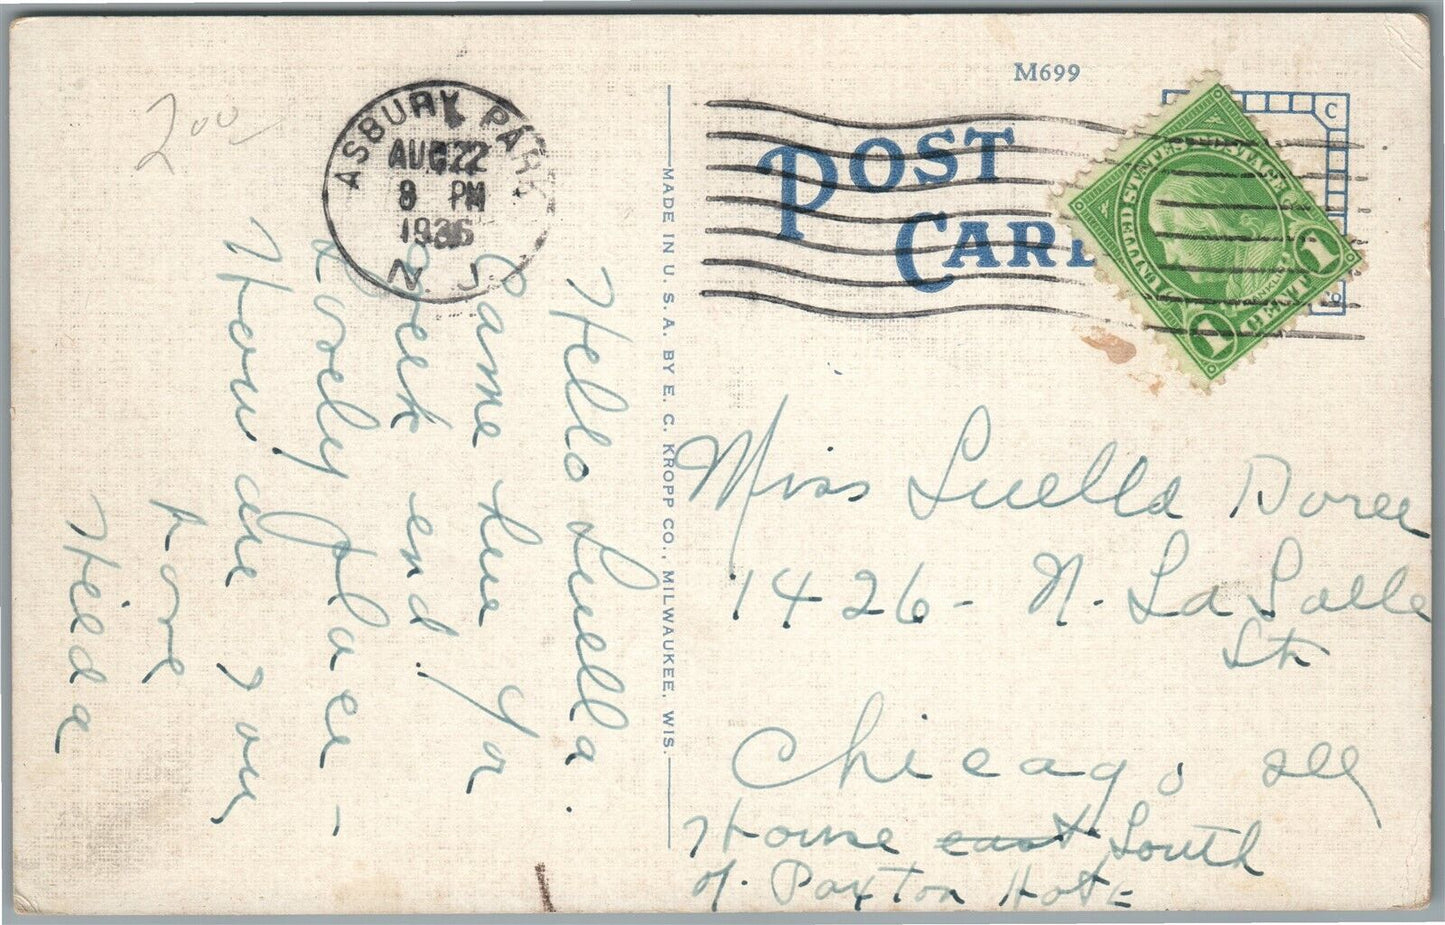 2 00
ASBURY PARK
AUG 22
8 PM
1936
N. J.
M699
POST
CARD
C
Co
UNITED STATES POSTAGE
FRANKLIN
1 CENT 1
MADE IN U. S. A. BY E. C. KROPP CO., MILWAUKEE, WIS.
Hello Luella.
Came here for
week end.
Lovely place -
How are you
Love
Hilda
Miss Luella Doree
1426 - N. La Salle
St
Chicago Ill
House east South
of Paxton Hote